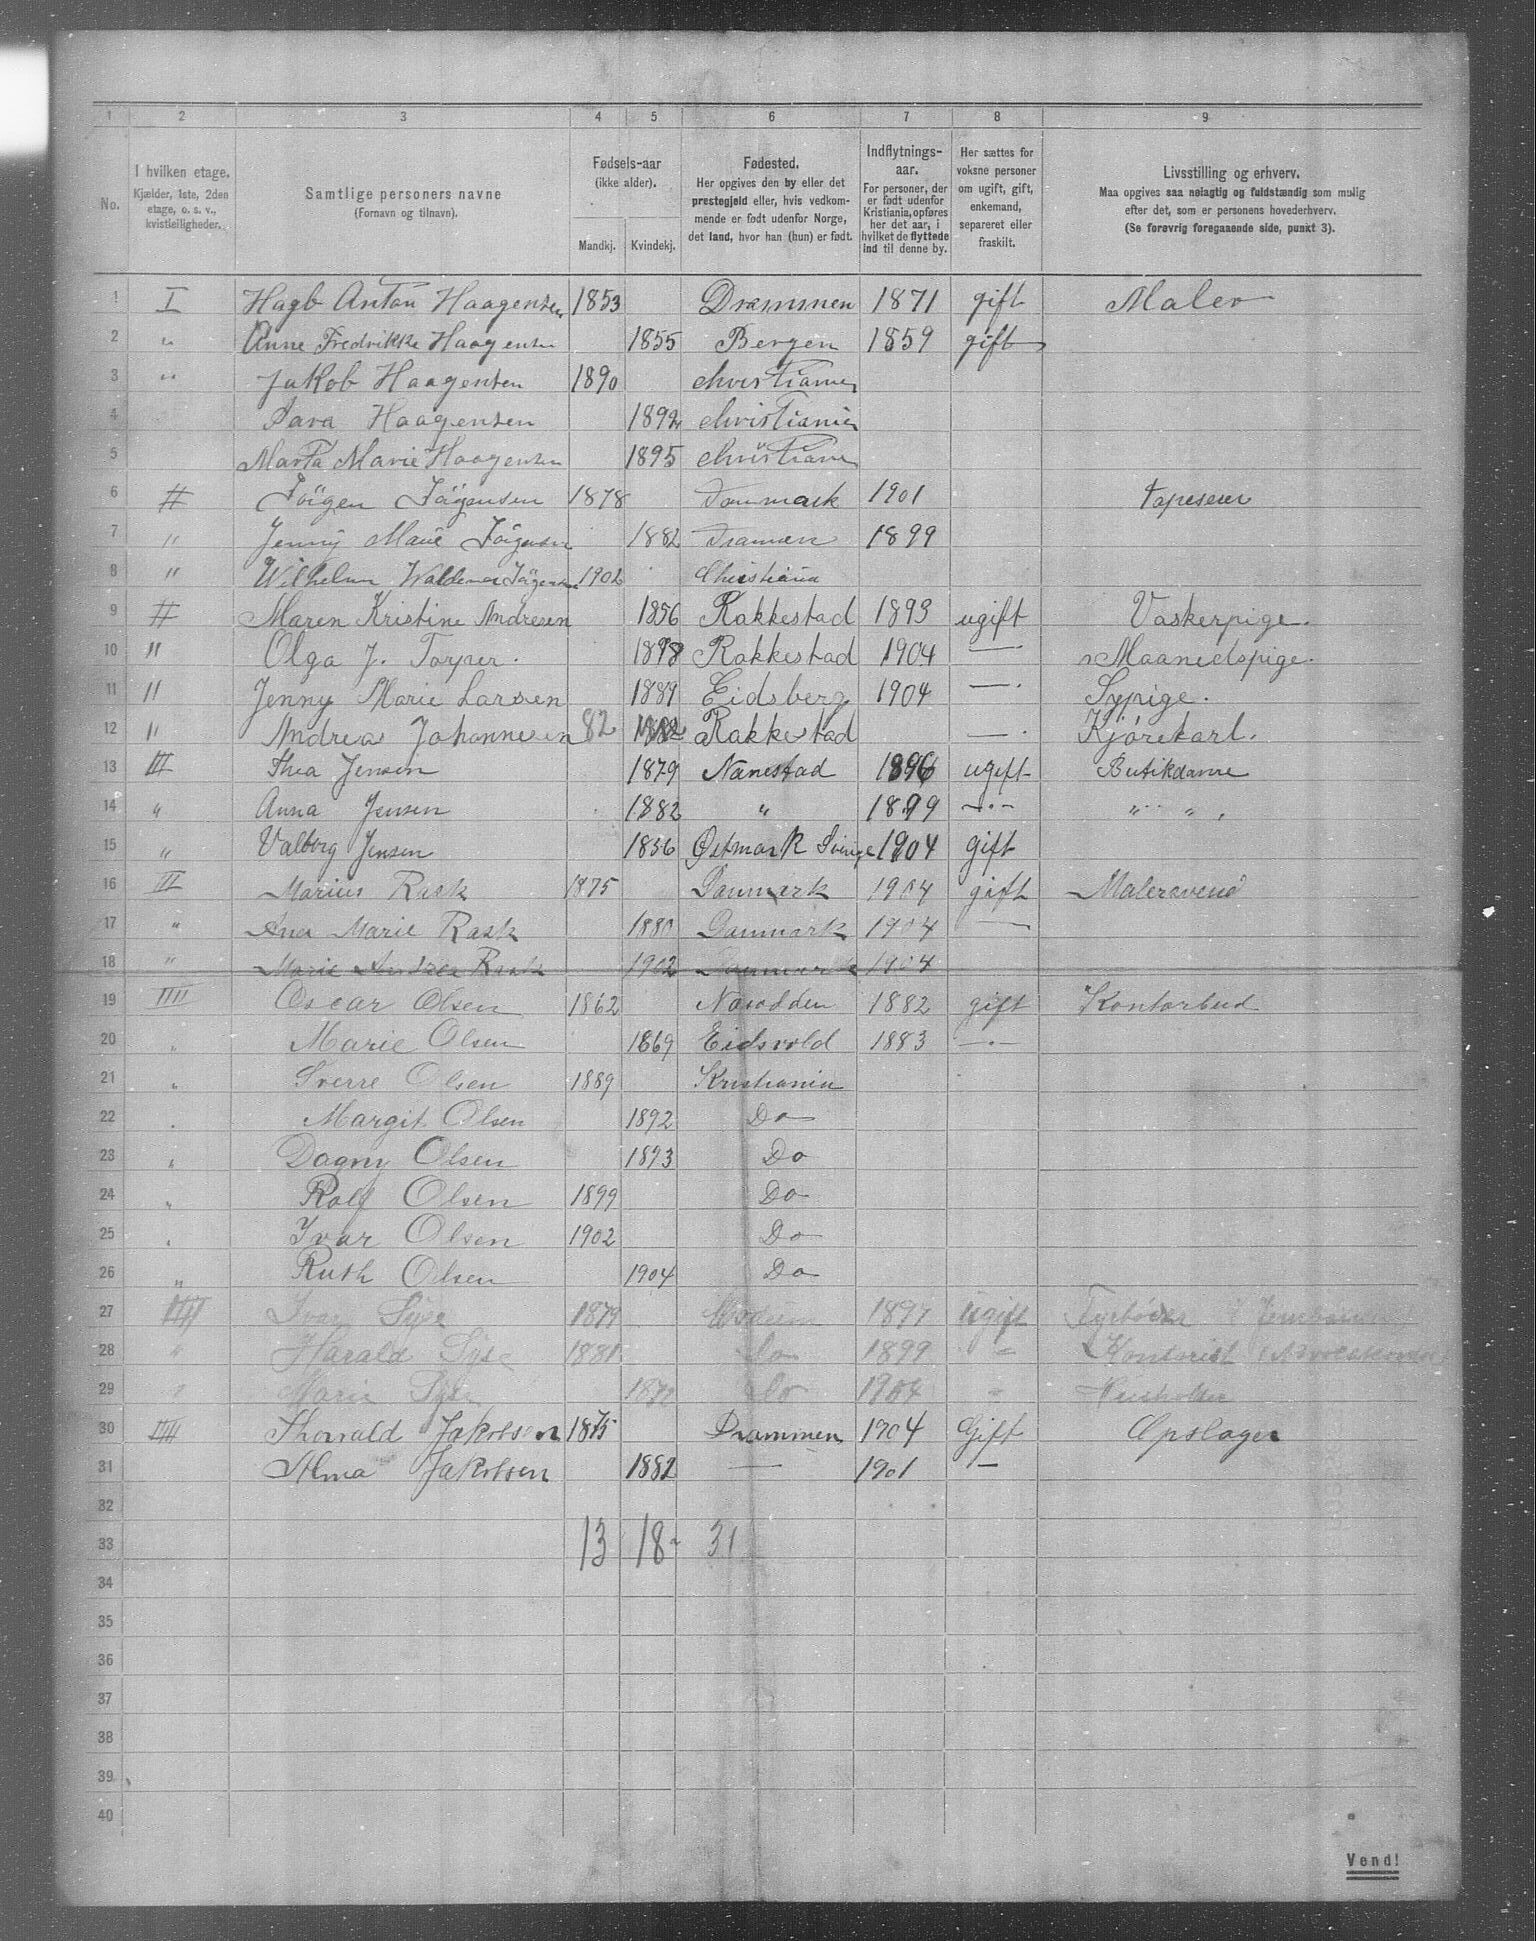 1 2 3 4 5 6 7 8 9
No.
I hvilken etage.
Kjælder, 1ste, 2den
etage, o. s. v.,
kvistleiligheder.
Samtlige personers navne
(Fornavn og tilnavn).
Fødsels-aar
(ikke alder).
Mandkj. Kvindekj.
Fødested.
Her opgives den by eller det
prestegjeld eller, hvis vedkom-
mende er født udenfor Norge,
det land, hvor han (hun) er født.
Indflytnings-
aar.
For personer, der
er født udenfor
Kristiania, opføres
her det aar, i
hvilket de flyttede
ind til denne by.
Her sættes for
voksne personer
om ugift, gift,
enkemand,
separeret eller
fraskilt.
Livsstilling og erhverv.
Maa opgives saa nøiagtig og fuldstændig som mulig
efter det, som er personens hovederhverv.
(Se forøvrig foregaaende side, punkt 3).
1 I Hagb Anton Haagensen 1853 Drammen 1871 gift Maler
2 " Anne Fredrikke Haagensen 1855 Bergen 1859 gift
3 " Jakob Haagensen 1890 christiania
4 Sara Haagensen 1892 christiania
5 Marta Marie Haagensen 1895 christiania
6 II Jörgen Jörgensen 1878 Danmark 1901 Tapeserer
7 " Jenny Marie Jörgensen 1882 Dramen 1899
8 " Wilhelm Waldemar Jörgensen 1902 Christiania
9 II Maren Kristine Andresen 1856 Rakkestad 1893 ugift Vaskerpige.
10 " Olga J. Torper. 1898 Rakkestad 1904 — Maanedspige.
11 " Jenny Marie Larsen 1889 Eidsberg 1904 — Sypige.
12 " Andreas Johannesen 82 1882 Rakkestad — Kjørekarl.
13 III Thea Jensen 1879 Nanestad 1896 ugift Butikdame
14 " Anna Jensen 1882 " 1899 —·— " "
15 " Valborg Jensen 1856 Østmark Sverige 1904 gift
16 III Marius Rask 1875 Danmark 1904 gift Malersvend
17 " Ana Marie Rask 1880 Danmark 1904 —
18 " Marie Andrea Rask 1902 Danmark 1904
19 IIII Oscar Olsen 1862 Nesodden 1882 gift Kontorbud
20 " Marie Olsen 1869 Eidsvold 1883 —·—
21 " Sverre Olsen 1889 Kristiania
22 " Margit Olsen 1892 Do
23 " Dagny Olsen 1893 Do
24 " Rolf Olsen 1899 Do
25 " Ivar Olsen 1902 Do
26 " Ruth Olsen 1904 Do
27 IIII Ivar Syse 1879 Modum 1897 ugift Fyrbøder
28 " Harald Syse 1881 do 1899 " Kontorist
29 " Marie Syse do 1904 "
30 IIII Thorvald Jakobsen 1875 Drammen 1904 Gift Opslager
31 Alma Jakobsen 1882 — 1901 —
32
33 13 18 31
34
35
36
37
38
39
40
Vend!